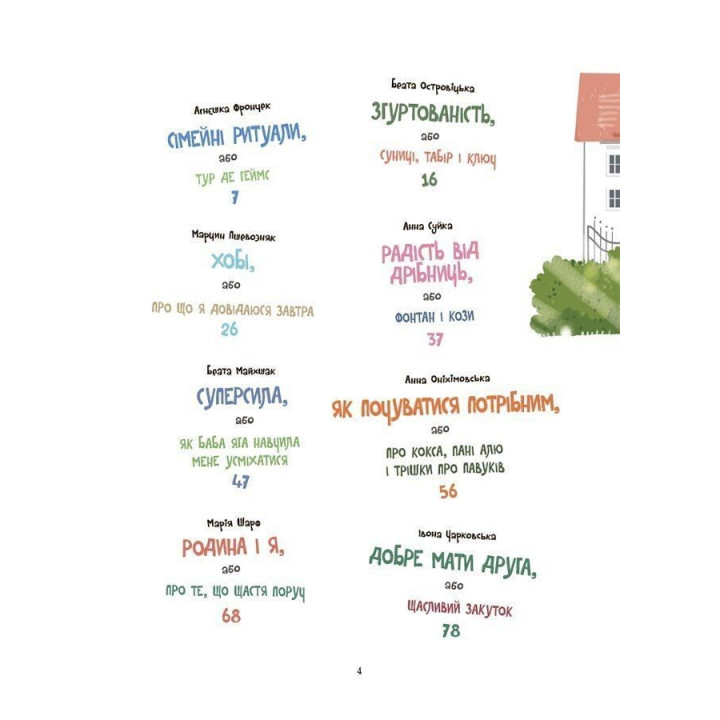 Аґнєшка Фрончек
СІМЕЙНІ РИТУАЛИ,
або
ТУР ДЕ ГЕЙМС
7
Беата Островіцька
ЗГУРТОВАНІСТЬ,
або
СУНИЦІ, ТАБІР І КЛЮЧ
16
Марцин Пшевозняк
ХОБІ,
або
ПРО ЩО Я ДОВІДАЮСЯ ЗАВТРА
26
Анна Суйка
РАДІСТЬ ВІД
ДРІБНИЦЬ,
або
ФОНТАН І КОЗИ
37
Беата Майхшак
СУПЕРСИЛА,
або
ЯК БАБА ЯГА НАВЧИЛА
МЕНЕ УСМІХАТИСЯ
47
Анна Оніхімовська
ЯК ПОЧУВАТИСЯ ПОТРІБНИМ,
або
ПРО КОКСА, ПАНІ АЛЮ
І ТРІШКИ ПРО ПАВУКІВ
56
Марія Шарф
РОДИНА І Я,
або
ПРО ТЕ, ЩО ЩАСТЯ ПОРУЧ
68
Івона Чарковська
ДОБРЕ МАТИ ДРУГА,
або
ЩАСЛИВИЙ ЗАКУТОК
78
4